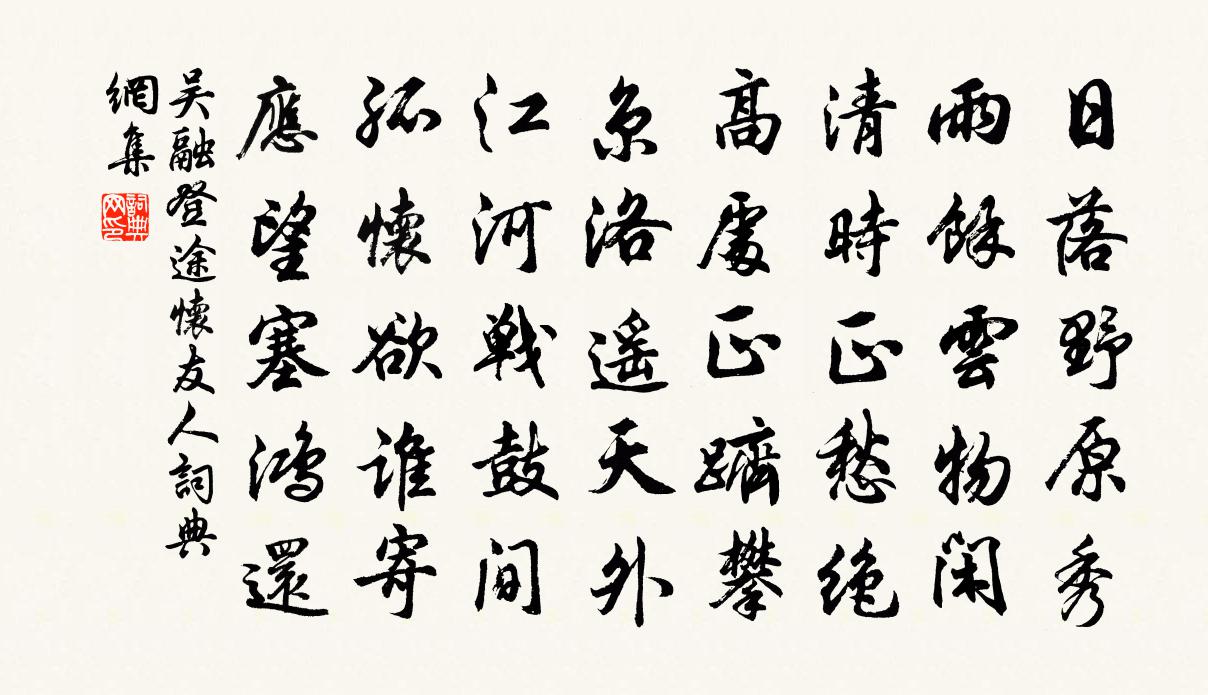 日落野原秀
雨餘雲物閑
清時正愁絶
高處正躋攀
京洛遥天外
江河戰鼓間
孤懷欲誰寄
應望塞鴻還
吴融登途懷友人詞典
網集
詞典
网印